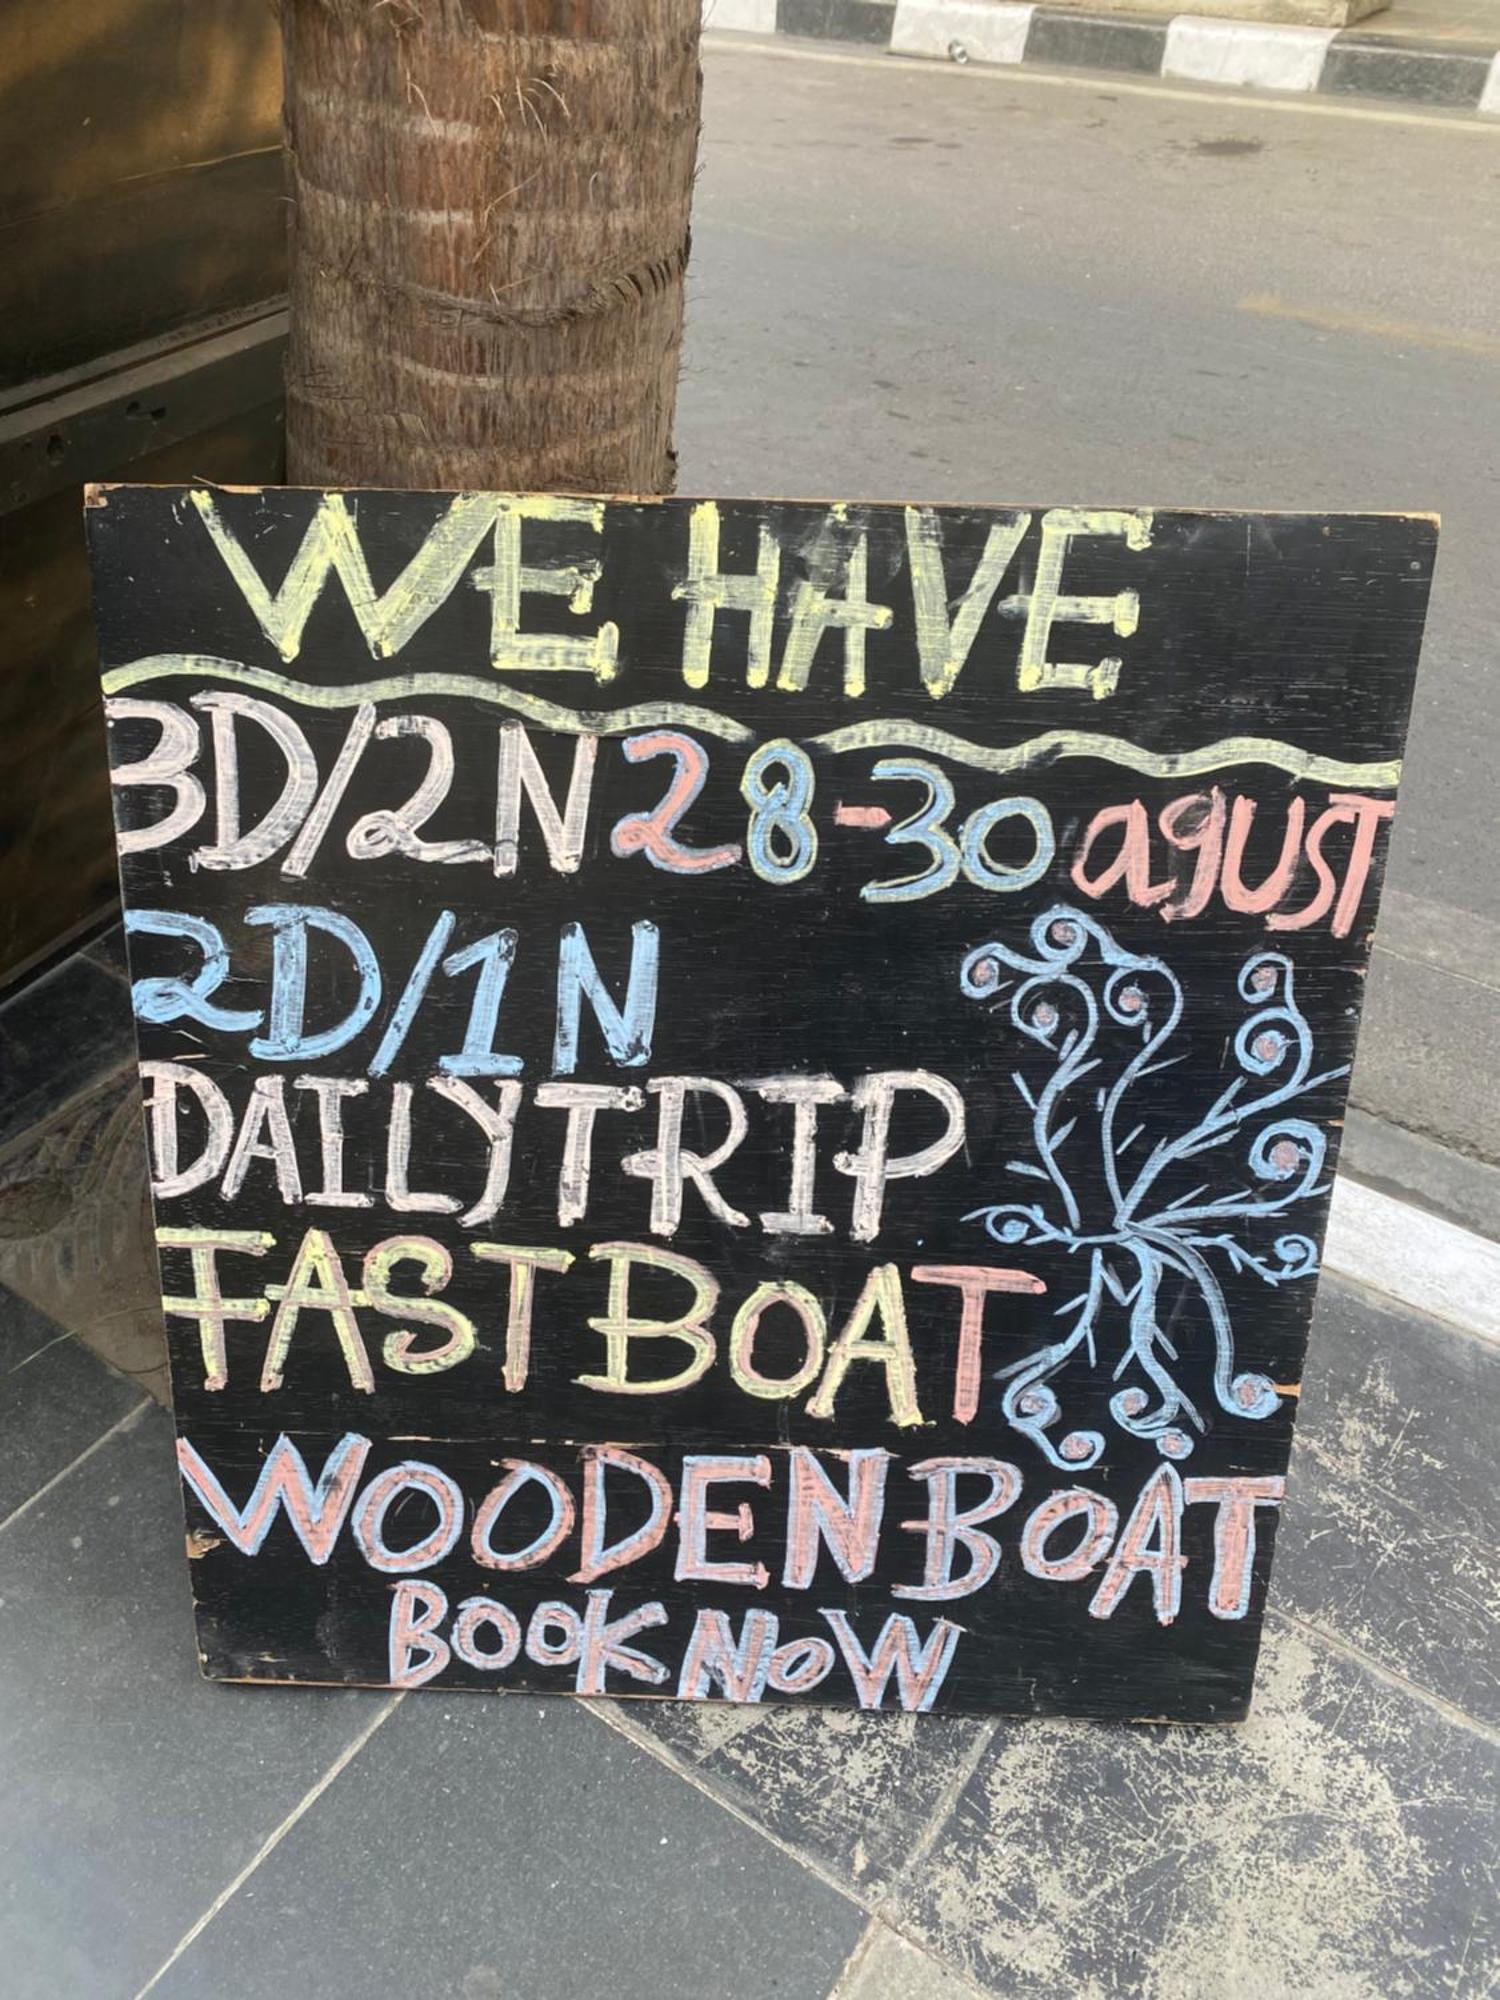 WE HAVE
3D/2N 28-30 agUST
2D/1N
DAILY TRIP
FAST BOAT
WOODEN BOAT
BOOK NOW